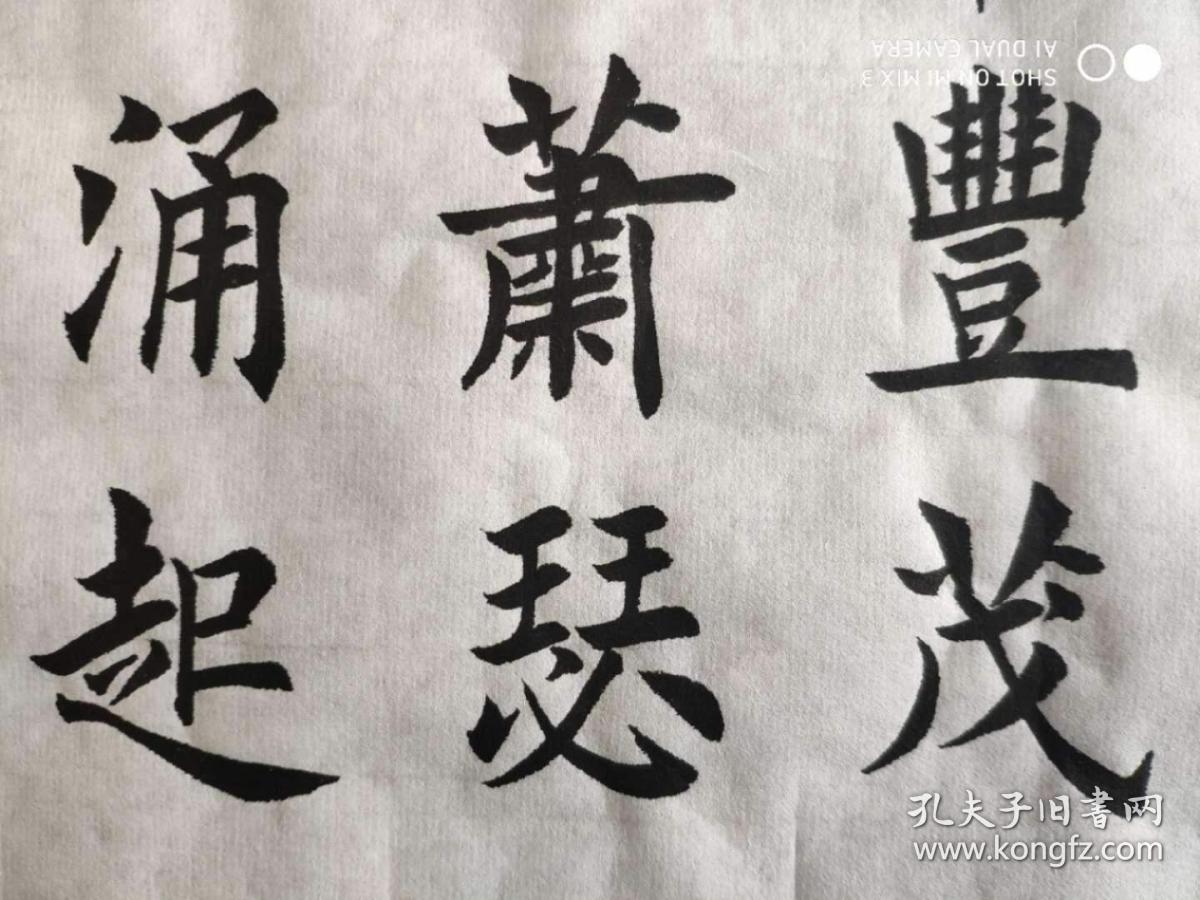 豐茂
蕭瑟
涌起
SHOT ON MI MIX 3
AI DUAL CAMERA
孔夫子旧書网
www.kongfz.com